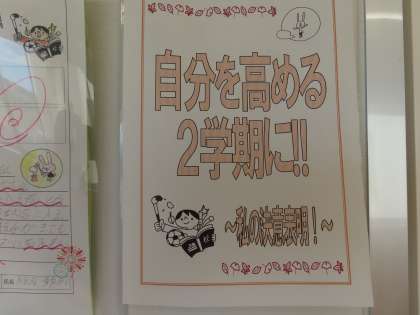 自分を高める
2学期に!!
~私の決意表明!~